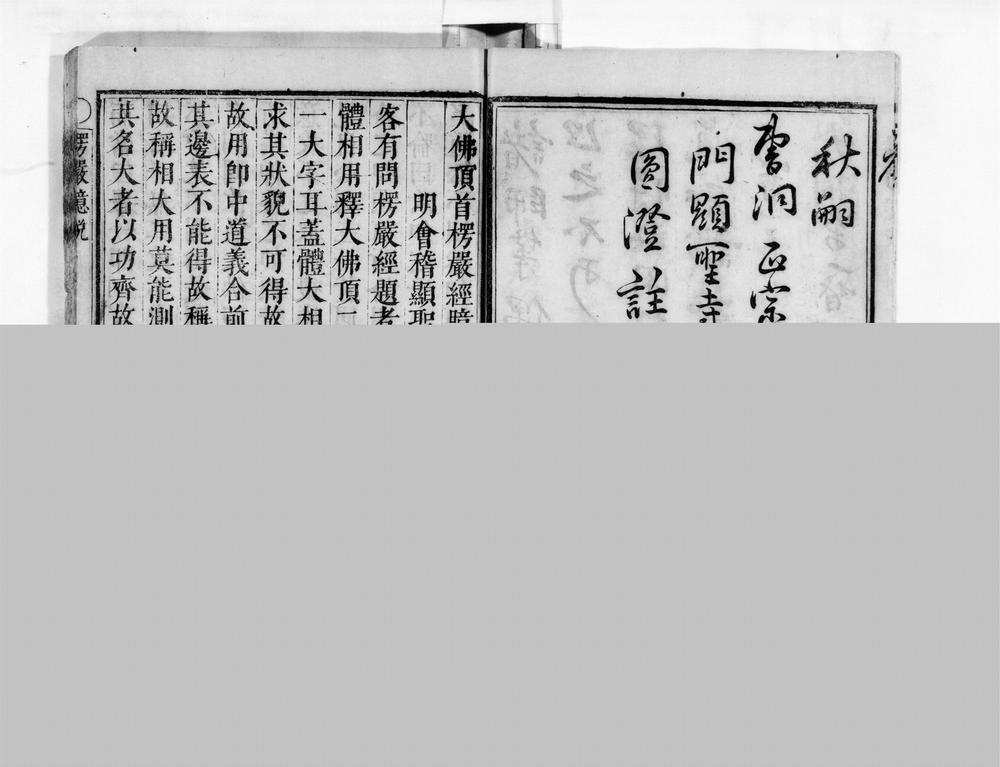 秋嗣
曹洞正宗
門顯聖寺
圓澄註
大佛頂首楞嚴經臆
明會稽顯聖
客有問楞嚴經題者
體相用釋大佛頂一
一大字耳蓋體大相
求其狀貌不可得故
故用卽中道義合前
其邊表不能得故稱
故稱相大用莫能測
共名大者以功齊故
〇楞嚴臆說